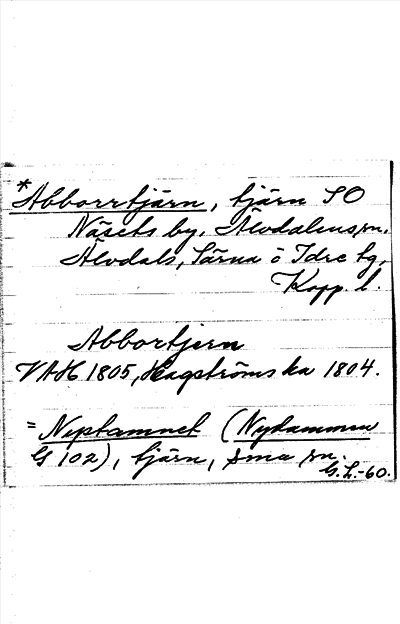 *Abborrtjärn, tjärn SO
Näsets by, Älvdalens sn,
Älvdals, Särna o Idre tg,
Kopp. l.
Abbortjern
VAH 1805, Hagströms ka 1804.
= Neptamnet (Nydammen
G 102), tjärn, sma sn.
G.L.-60.